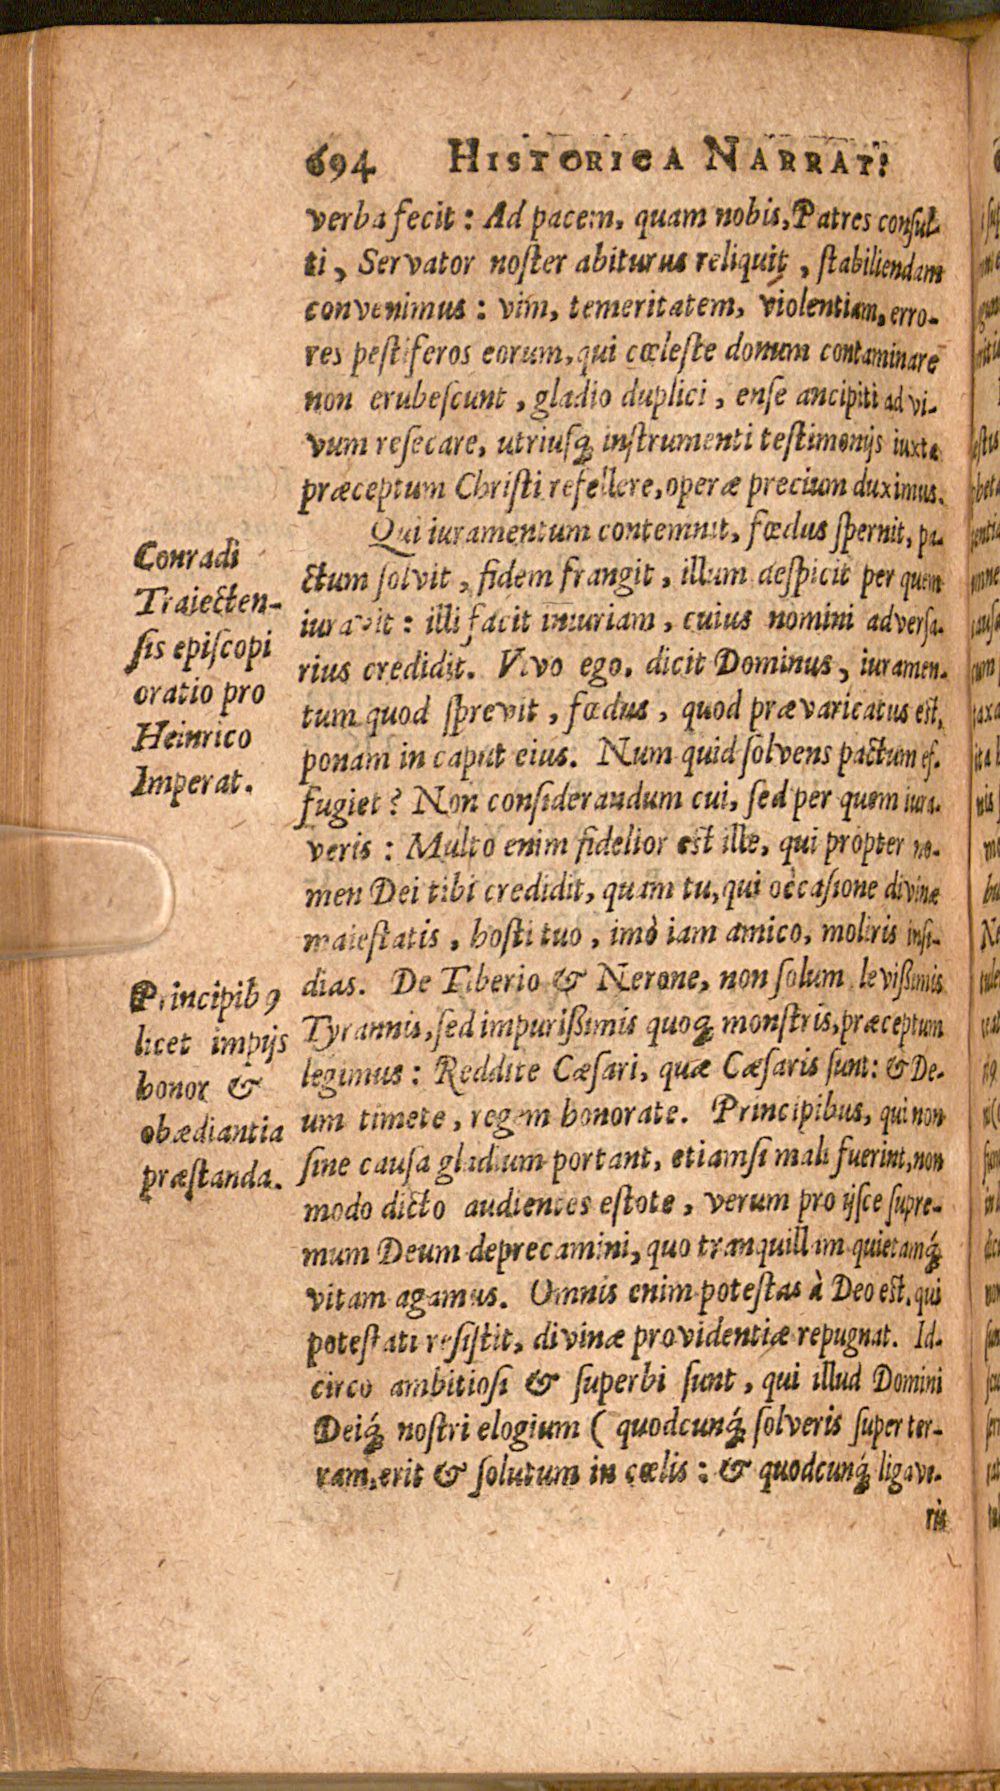 694 HISTORICA NARRAT:
verba fecit : Ad pacem, quam nobis, Patres consul-
ti, Servator noster abiturus reliquit, stabiliendam
convenimus : vim, temeritatem, violentiam, erro-
res pestiferos eorum, qui cœleste donum contaminare
non erubescunt, gladio duplici, ense ancipiti ad vi-
vum resecare, utriusq; instrumenti testimonijs iuxta
præceptum Christi refellere, operæ precium duximus.
Qui iuramentum contemnit, fœdus spernit, pa-
ctum solvit, fidem frangit, illum despicit per quem
iuravit : illi facit iniuriam, cuius nomini adversa-
rius credidit. Vivo ego, dicit Dominus, iuramen-
tum quod sprevit, fœdus, quod prævaricatus est,
ponam in caput eius. Num quid solvens pactum ef-
fugiet ? Non considerandum cui, sed per quem iura-
veris : Multo enim fidelior est ille, qui propter no-
men Dei tibi credidit, quam tu, qui occasione divinæ
maiestatis, hosti tuo, imò iam amico, moliris insi-
dias. De Tiberio & Nerone, non solum levißimis
Tyrannis, sed impurißimis quoq; monstris, præceptum
legimus : Reddite Cæsari, quæ Cæsaris sunt: & De-
um timete, regem honorate. Principibus, qui non
sine causa gladium portant, etiamsi mali fuerint, non
modo dicto audientes estote, verum pro ijsce supre-
mum Deum deprecamini, quo tranquillam quietamq́;
vitam agamus. Omnis enim potestas à Deo est, qui
potestati resistit, divinæ providentiæ repugnat. Id-
circo ambitiosi & superbi sunt, qui illud Domini
Deiq́; nostri elogium ( quodcunq́; solveris super ter-
ram, erit & solutum in cœlis : & quodcunq́; ligave-
ris
Conradi
Traiecten-
sis episcopi
oratio pro
Heinrico
Imperat.
Principibꝰ
licet impijs
honor &
obædiantia
præstanda.